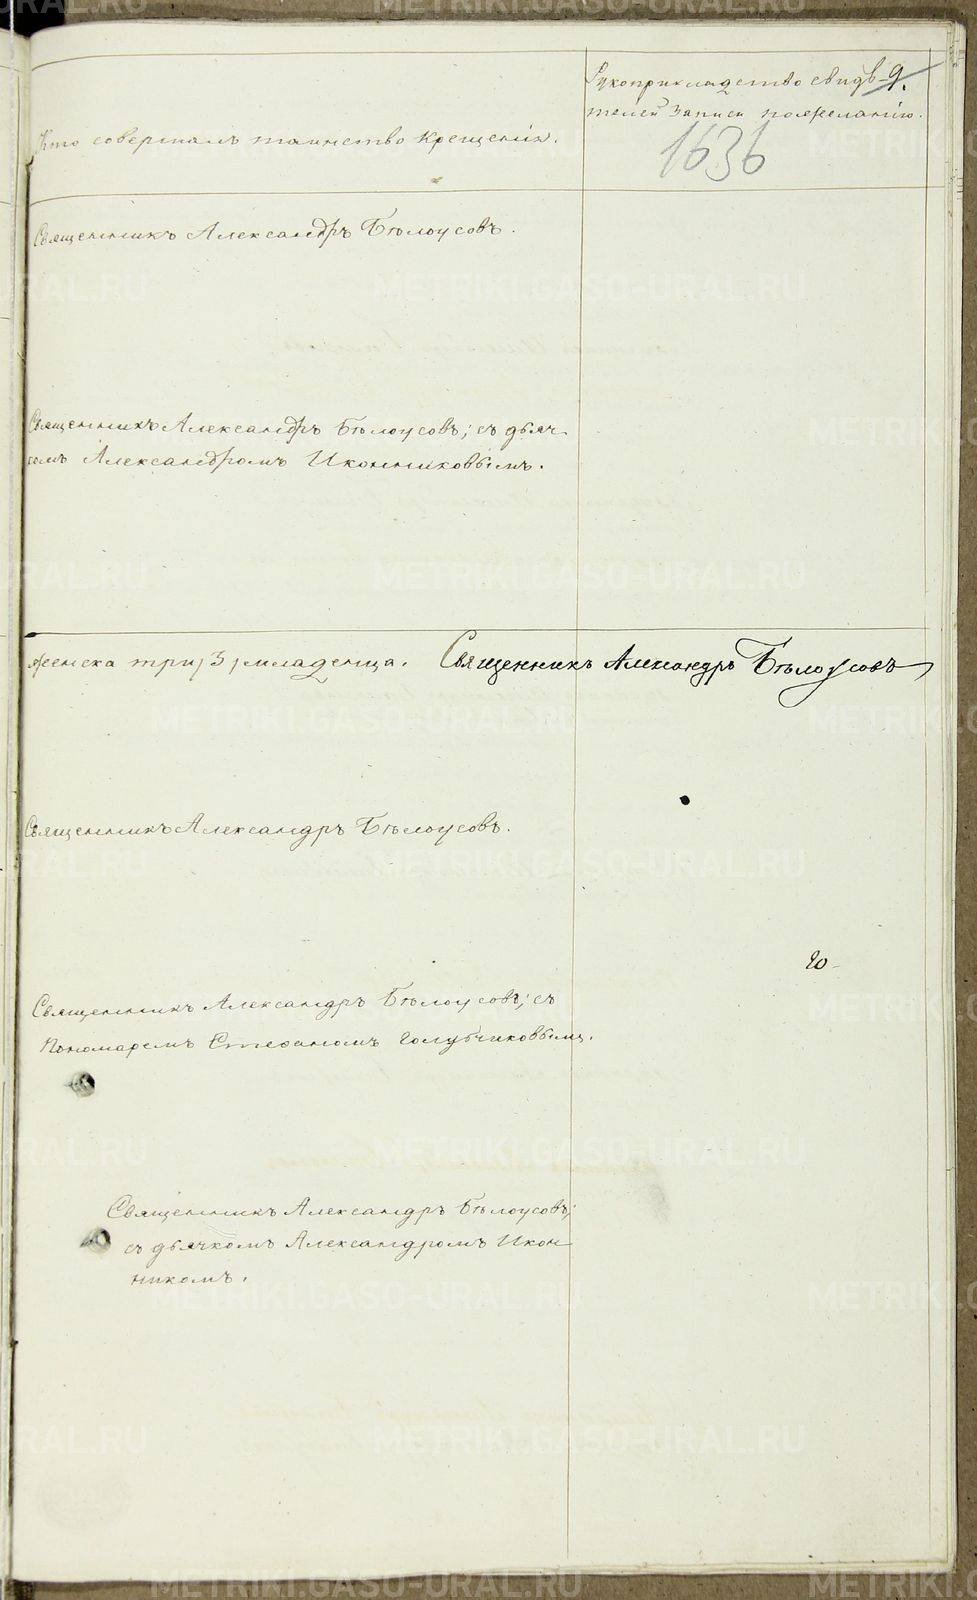 Рукоприкладство свидѣ- 9.
телей записи по желанію.
Кто совершалъ таинство крещенія.
1636
Священникъ Александръ Бѣлоусовъ.
Священникъ Александръ Бѣлоусовъ; съ дьяч
комъ Александромъ Иконниковымъ.
женска три /3/ младенца. Священникъ Александръ Бѣлоусовъ
Священникъ Александръ Бѣлоусовъ.
Священникъ Александръ Бѣлоусовъ; съ
Пономаремъ Стефаномъ Голубчиковымъ.
Священникъ Александръ Бѣлоусовъ;
съ дьячкомъ Александромъ Икон
никомъ.
METRIKI.GASO-URAL.RU